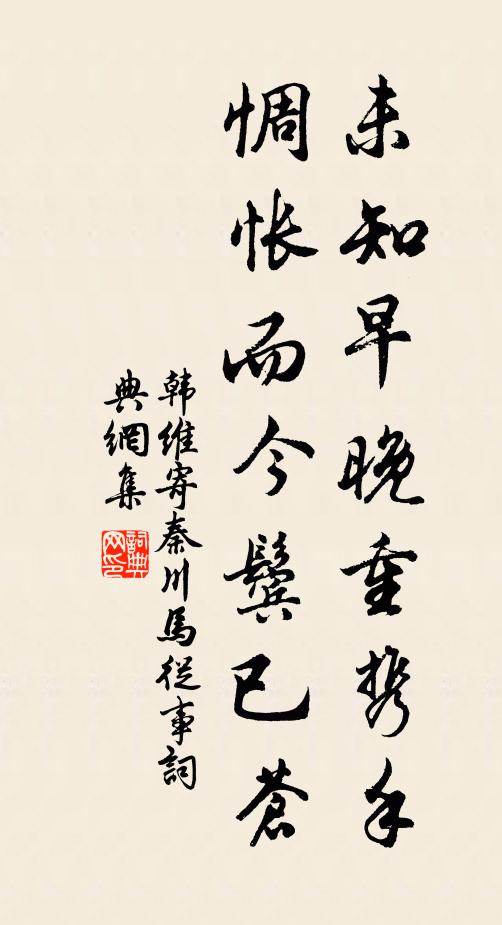 未知早晚重携手
惆怅而今鬓已苍
韩维寄秦川马從事詞
典網集
詞典网印